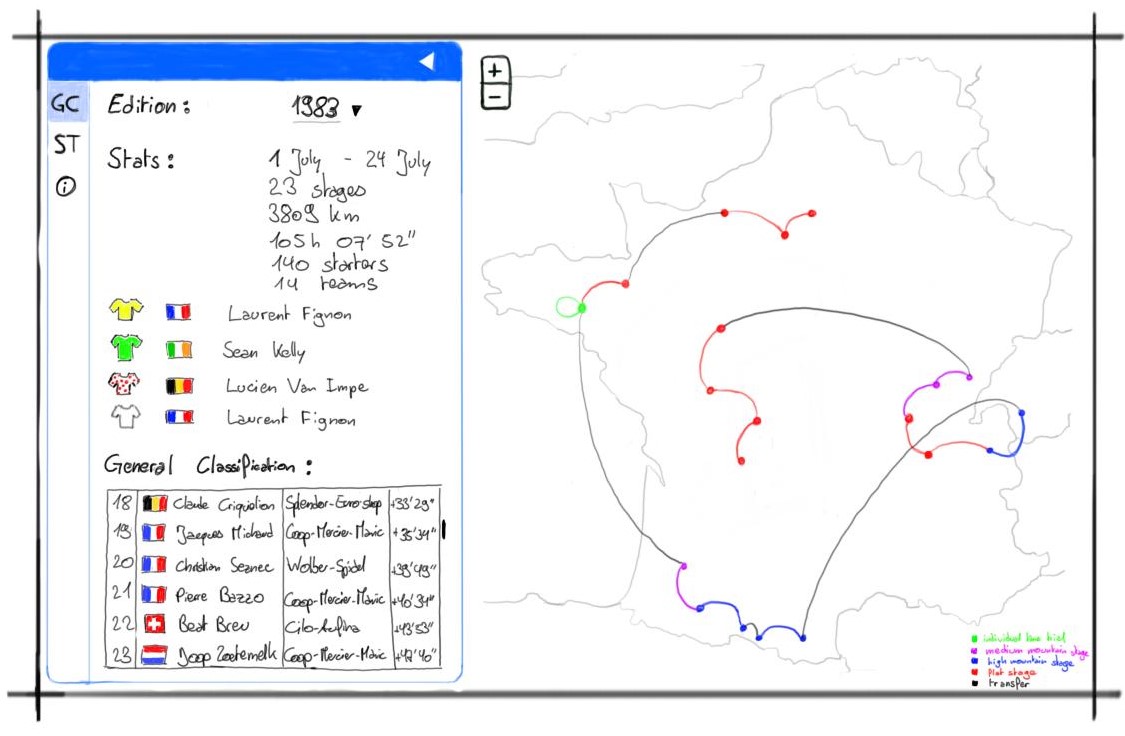 +
−
GC
Edition : 1983
ST
Stats :
1 July - 24 July
23 stages
3809 km
105h 07' 52"
140 starters
14 teams
i
Laurent Fignon
Sean Kelly
Lucien Van Impe
Laurent Fignon
General Classification :
18 Claude Criquielion Splendor-Euroshop +33'29"
19 Jacques Michaud Coop-Mercier-Mavic +35'34"
20 Christian Seznec Wolber-Spidel +39'49"
21 Pierre Bazzo Coop-Mercier-Mavic +40'34"
22 Beat Breu Cilo-Aufina +43'53"
23 Joop Zoetemelk Coop-Mercier-Mavic
individual time trial
medium mountain stage
high mountain stage
flat stage
transfer